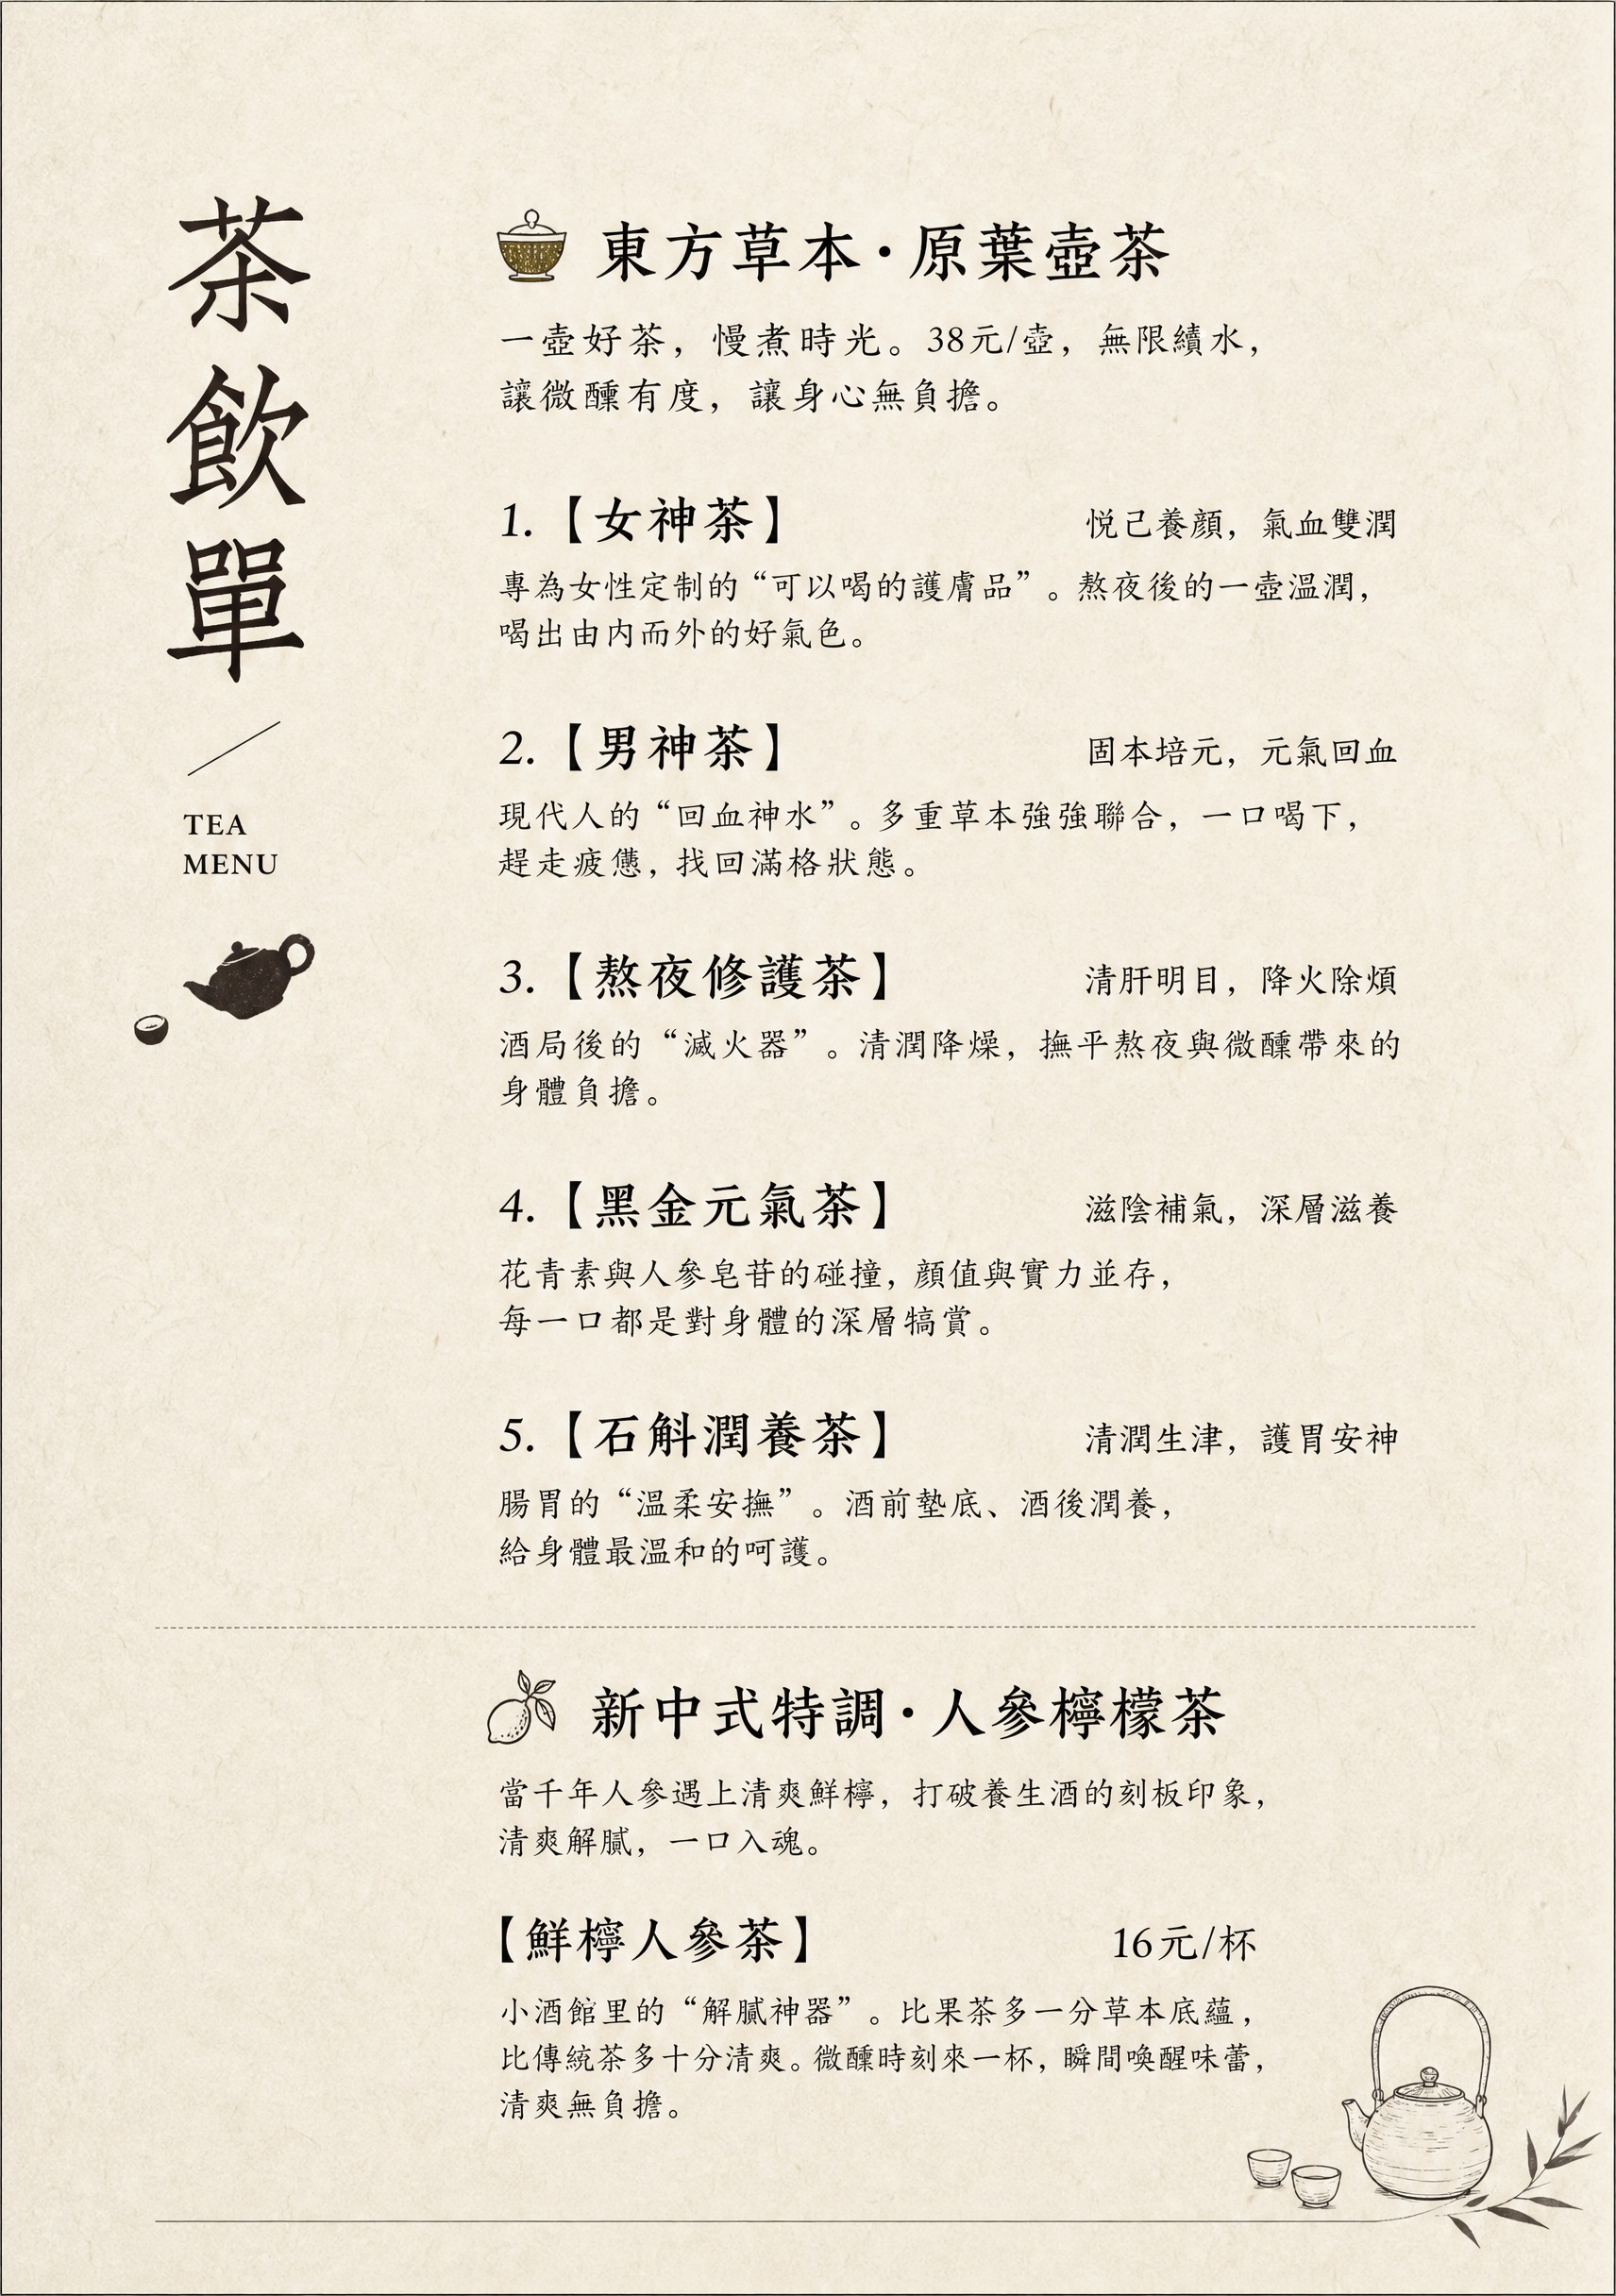 茶飲單
TEA
MENU
東方草本·原葉壺茶
一壺好茶，慢煮時光。38元/壺，無限續水，
讓微醺有度，讓身心無負擔。
1.【女神茶】 悦己養顔，氣血雙潤
專為女性定制的“可以喝的護膚品”。熬夜後的一壺温潤，
喝出由内而外的好氣色。
2.【男神茶】 固本培元，元氣回血
現代人的“回血神水”。多重草本強強聯合，一口喝下，
趕走疲憊，找回滿格狀態。
3.【熬夜修護茶】 清肝明目，降火除煩
酒局後的“滅火器”。清潤降燥，撫平熬夜與微醺帶來的
身體負擔。
4.【黑金元氣茶】 滋陰補氣，深層滋養
花青素與人參皂苷的碰撞，顔值與實力並存，
每一口都是對身體的深層犒賞。
5.【石斛潤養茶】 清潤生津，護胃安神
腸胃的“溫柔安撫”。酒前墊底、酒後潤養，
給身體最溫和的呵護。
新中式特調·人參檸檬茶
當千年人參遇上清爽鮮檸，打破養生酒的刻板印象，
清爽解膩，一口入魂。
【鮮檸人參茶】 16元/杯
小酒館里的“解膩神器”。比果茶多一分草本底蘊，
比傳統茶多十分清爽。微醺時刻來一杯，瞬間喚醒味蕾，
清爽無負擔。